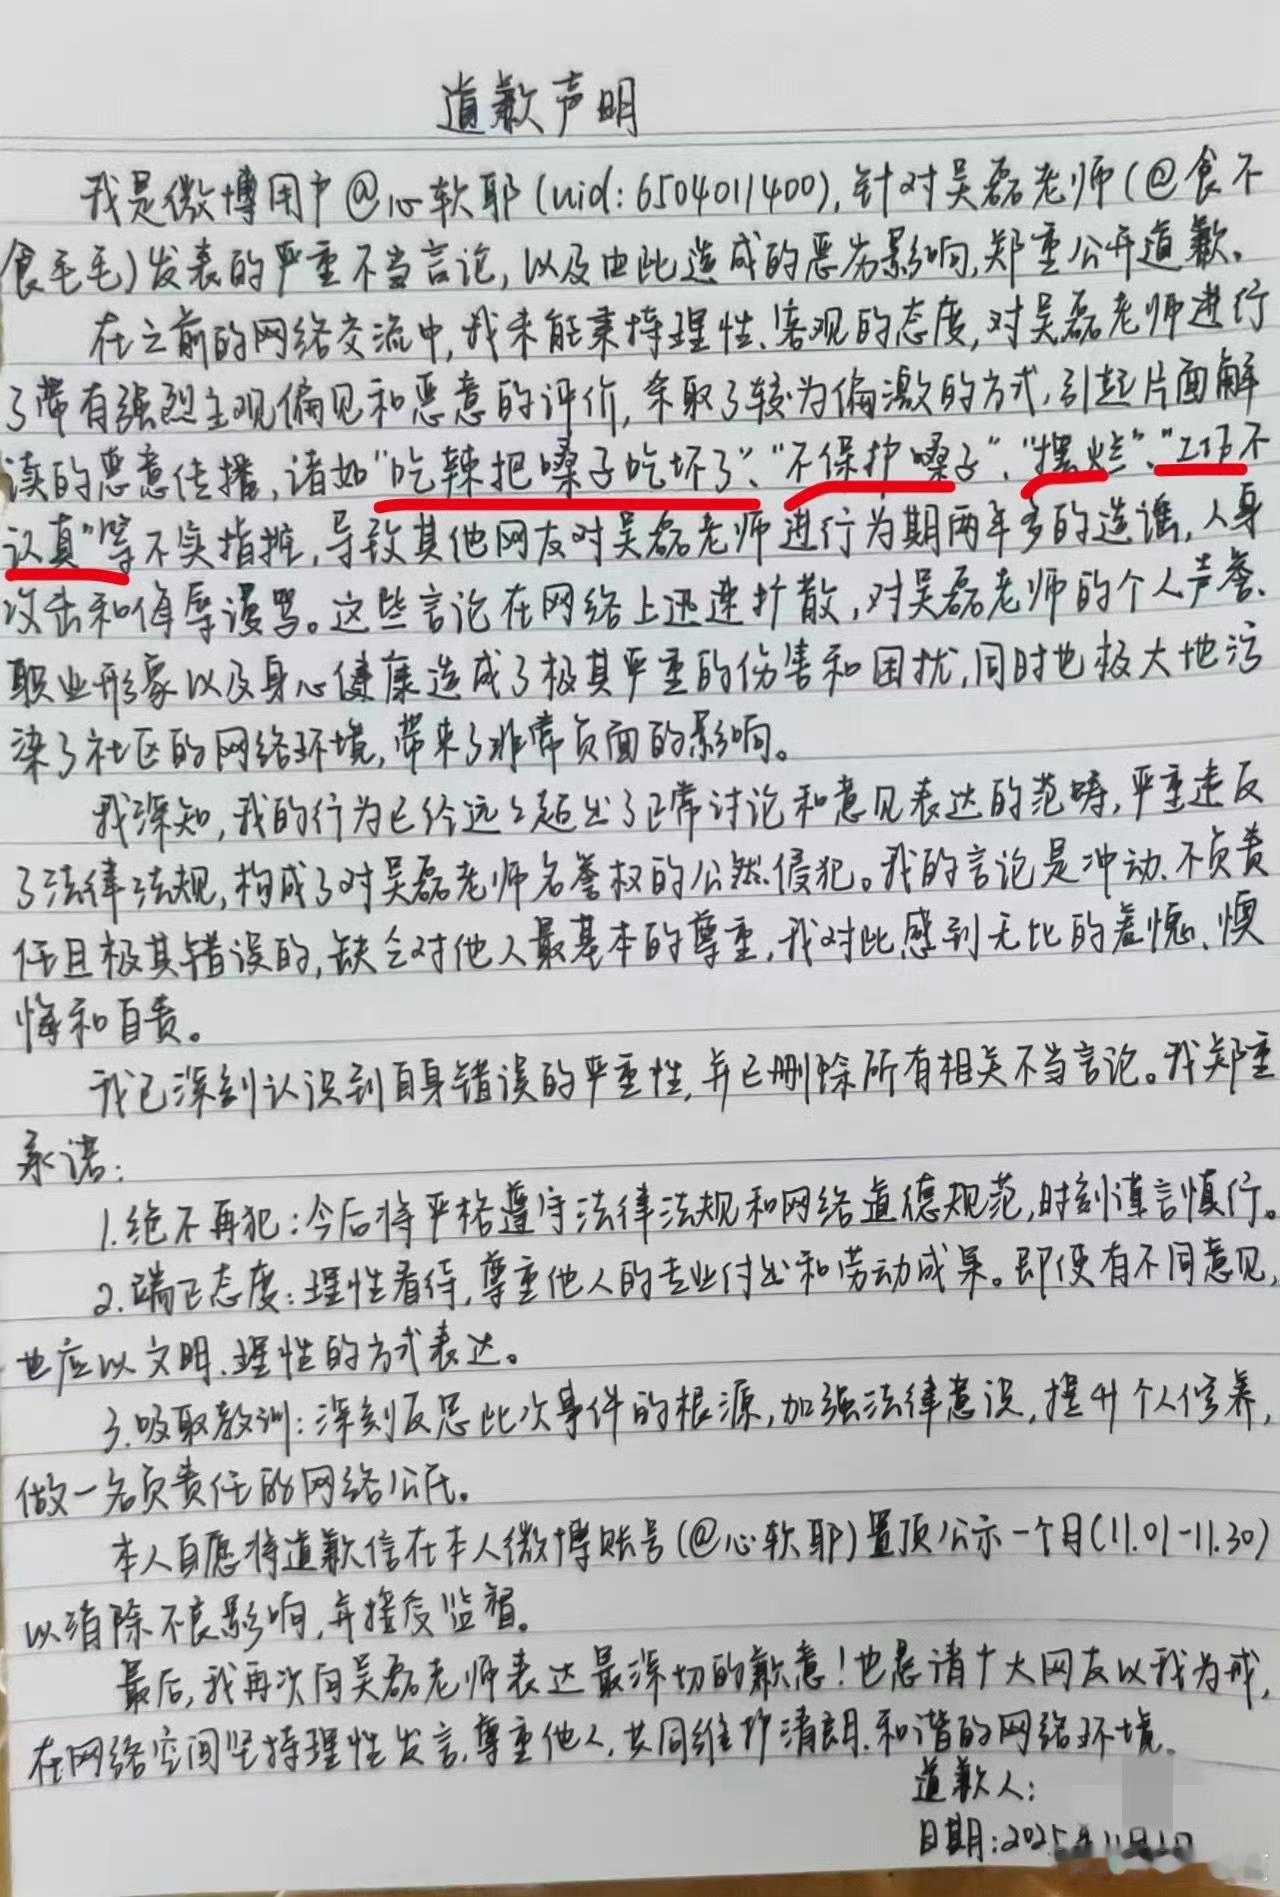 道歉声明
我是微博用户@心软耶(uid:6504011400),针对吴磊老师(@食不
食毛毛)发表的严重不当言论,以及由此造成的恶劣影响,郑重公开道歉。
在之前的网络交流中,我未能秉持理性、客观的态度,对吴磊老师进行
了带有强烈主观偏见和恶意的评价,采取了较为偏激的方式,引起片面解
读的恶意传播,诸如"吃辣把嗓子吃坏了"、"不保护嗓子"、"摆烂"、"工作不
认真"等不实指控,导致其他网友对吴磊老师进行为期两年多的造谣,人身
攻击和侮辱谩骂。这些言论在网络上迅速扩散,对吴磊老师的个人声誉、
职业形象以及身心健康造成了极其严重的伤害和困扰,同时也极大地污
染了社区的网络环境,带来了非常负面的影响。
我深知,我的行为已经远远超出了正常讨论和意见表达的范畴,严重违反
了法律法规,构成了对吴磊老师名誉权的公然侵犯。我的言论是冲动、不负责
任且极其错误的,缺乏对他人最基本的尊重,我对此感到无比的羞愧、懊
悔和自责。
我已深刻认识到自身错误的严重性,并已删除所有相关不当言论。我郑重
承诺:
1.绝不再犯:今后将严格遵守法律法规和网络道德规范,时刻谨言慎行。
2.端正态度:理性看待,尊重他人的专业付出和劳动成果。即使有不同意见,
也应以文明、理性的方式表达。
3.吸取教训:深刻反思此次事件的根源,加强法律意识,提升个人修养,
做一名负责任的网络公民。
本人自愿将道歉信在本人微博账号(@心软耶)置顶公示一个月(11.01-11.30)
以消除不良影响,并接受监督。
最后,我再次向吴磊老师表达最深切的歉意!也恳请广大网友以我为戒,
在网络空间坚持理性发言,尊重他人,共同维护清朗、和谐的网络环境。
道歉人:
日期:2025年11月1日